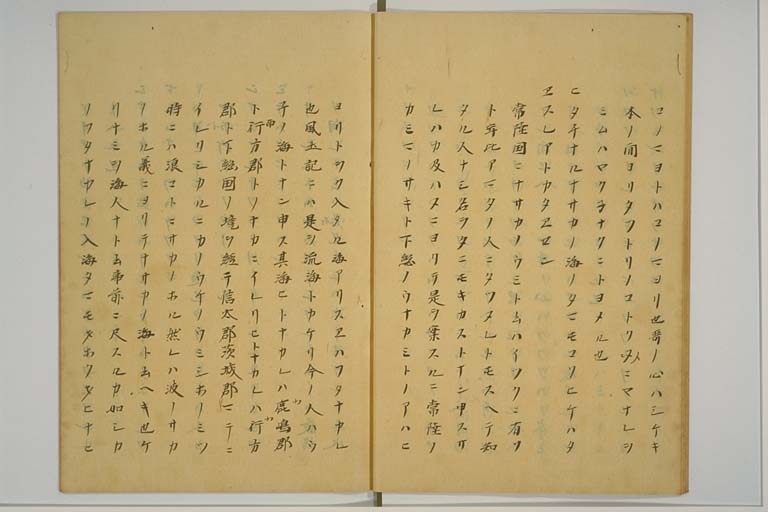 コノマヨトハコノマヨリ也哥ノ心ハシケキ
木ノ間ヨリタツトリノコトク吹ニマナレシ
ミムハマクヲナクニトヨメル也
ヒタチナルナサカノ海ノタマモコソヒケハタ
エスレアトカタエセン
常陸国ニナサカノウミト云ハイツクニ有ソ
ト尋此アマタノ人ニタツヌレトモスヘテ知
タル人ナシ名ヲタニモキカストイン申スサ
レハカ及ハスニヨリテ是ヲ案スルニ常陸ノ
カミマノサキト下総ノウナカミトノアハヒ
ヨリトヲク入タル海アリスヱハフタナカレ
也風土記ニハ是ヲ流海トカケリ今ノ人ハウ
チノ海トナン申ス其海ヒトナカレハ鹿嶋郡
ト行方郡トノナカニイレリヒトナカレハ行方
郡ト下総国ノ境ヲ経テ信太郡茨城郡マテニ
イレリシカルニカノウケノウミシホノミツ
時ニハ浪コトニサカノホル然レハ波ノサカ
ノホル義ニヨリテナサカノ海ト云ヘキ也ケ
リナミヲ海人ナト云事前ニ尺スルカ如シカ
ノフタナカレノ入海タマモオホクオヒナヒ